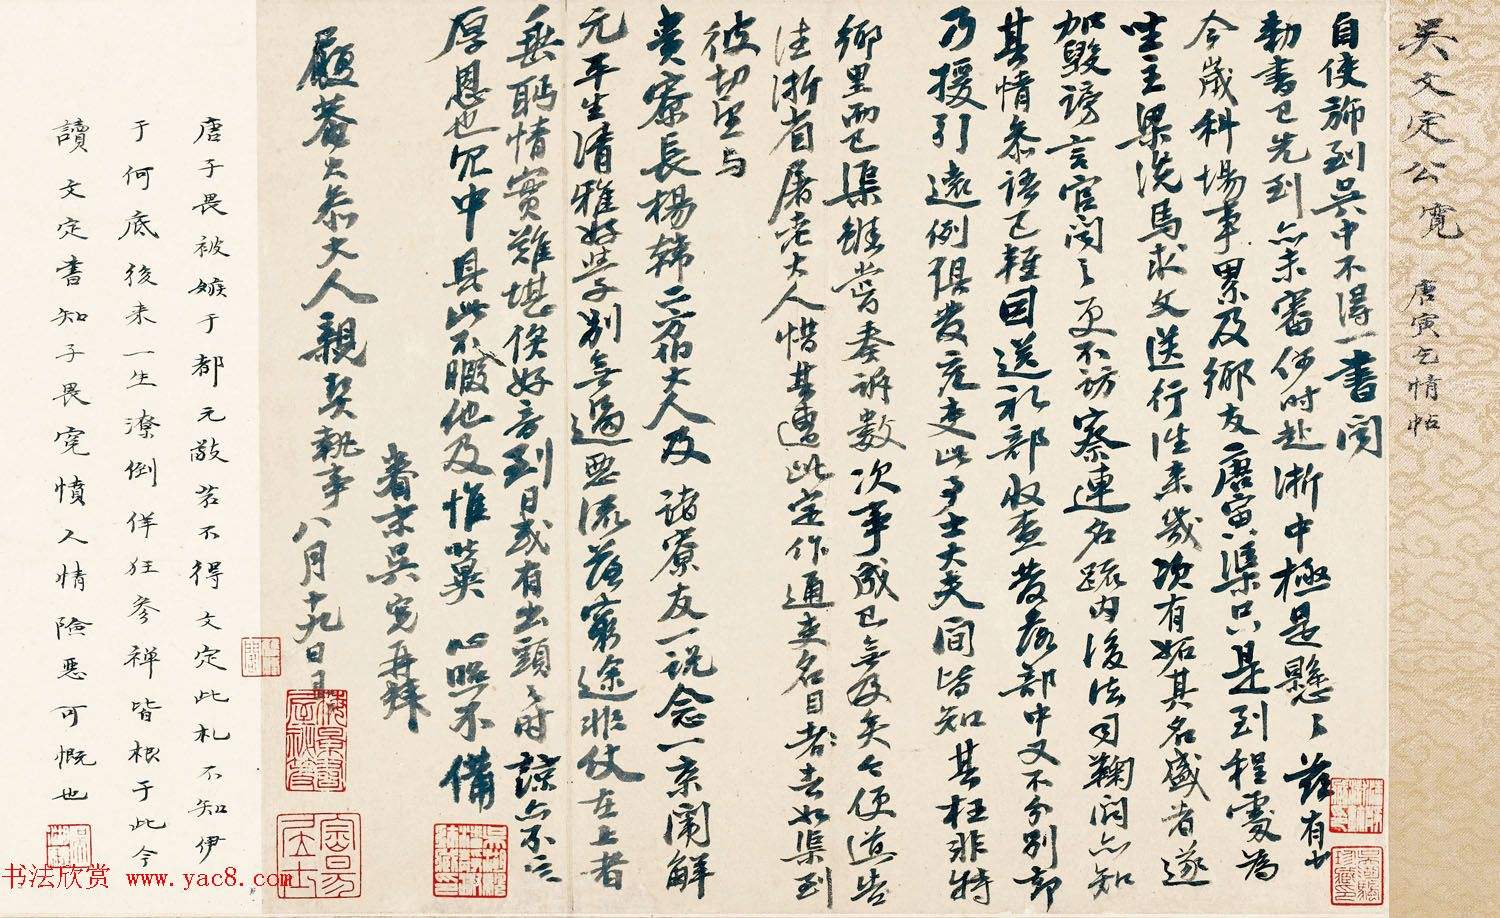 吳文定公寬
唐寅乞情帖
自使旆到吳中不得一書聞
勅書已先到亦未審何時赴浙中極是懸懸茲有少
今歲科場事累及鄉友唐寅渠只是到程處為
座主梁洗馬求文送行往來幾次有妬其名盛者遂
加毀謗言官聞之更不訪察連名疏內後法司鞠問亦知
其情參語已輕因送禮部收查發落部中又不分別却
乃援引遠例俱發充吏此事士大夫間皆知其枉非特
鄉里而已渠雖嘗奏訴數次事成已無及矣今便道告
往浙省屠老大人惜其遭此定作通吏名目者去如渠到
彼切望與
貴寮長楊韓二方伯大人及諸寮友一說念一京闈解
元平生清雅好學別無過惡流落窮途非仗在上者
垂眄情實難堪俟好音到日或有出頭之時諒亦不忘
厚恩也冗中具此不暇他及惟冀心照不備
眷末吳寬再拜
履菴大參大人親契執事 八月十九日
唐子畏被嫉于都元敬若不得文定此札不知伊
于何底後來一生潦倒佯狂參禪皆根于此今
讀文定書知子畏寃憤人情險惡可慨也
书法欣赏 www.yac8.com